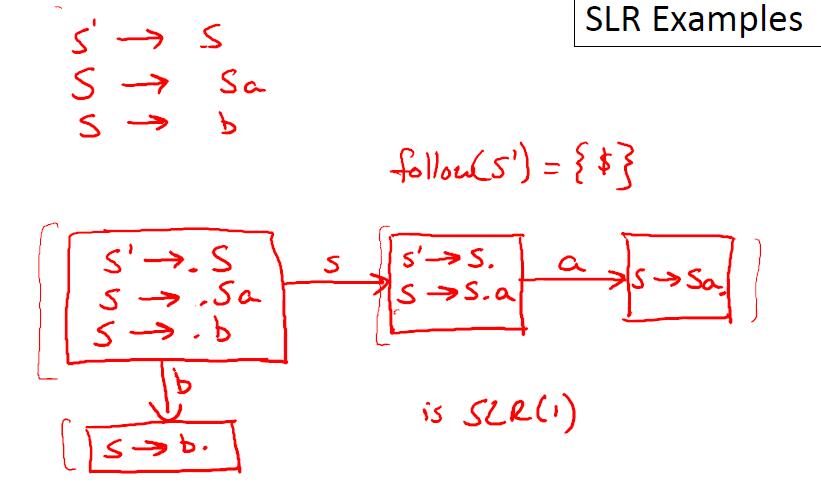 SLR Examples
S' → S
S → Sa
S → b
follow(S') = {$}
S' → . S
S → . Sa
S → . b
S
S' → S.
S → S.a
a
S → Sa.
b
S → b.
is SLR(1)